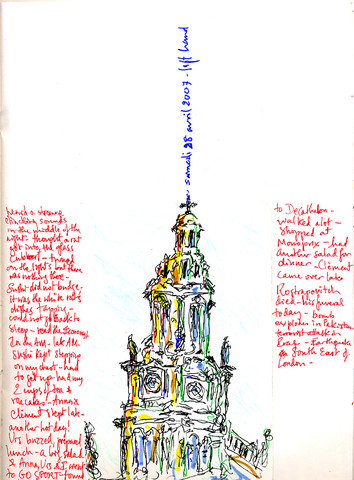 samedi 28 avril 2007 - left hand
heard a strange
clinking sounds
in the middle of the
night - thought a rat
got into the glass
Cubbort - turned
on the lights but there
was nothing there -
Sushi did not budge -
it was the white rats
dishes tapping -
could not go back to
sleep - read the Economist
2 in the AM - late AM.
Sushi kept stepping
on my chest - had
to get up - had my
2 cups of tea &
rice cakes - Anna &
Clément slept late -
another hot day!
Urs buzzed, prepared
lunch - a big salad
& Anna, Urs & I went
to GO SPORT - found
to Decathlon -
walked a lot -
shopped at
Monoprix - had
another salad for
dinner - Clément
came over later
Rostrapovitch
died - his funeral
today - bomb
explodes in Pakistan
terrorist attack in
Iraq - Earthquake
South East of
London -